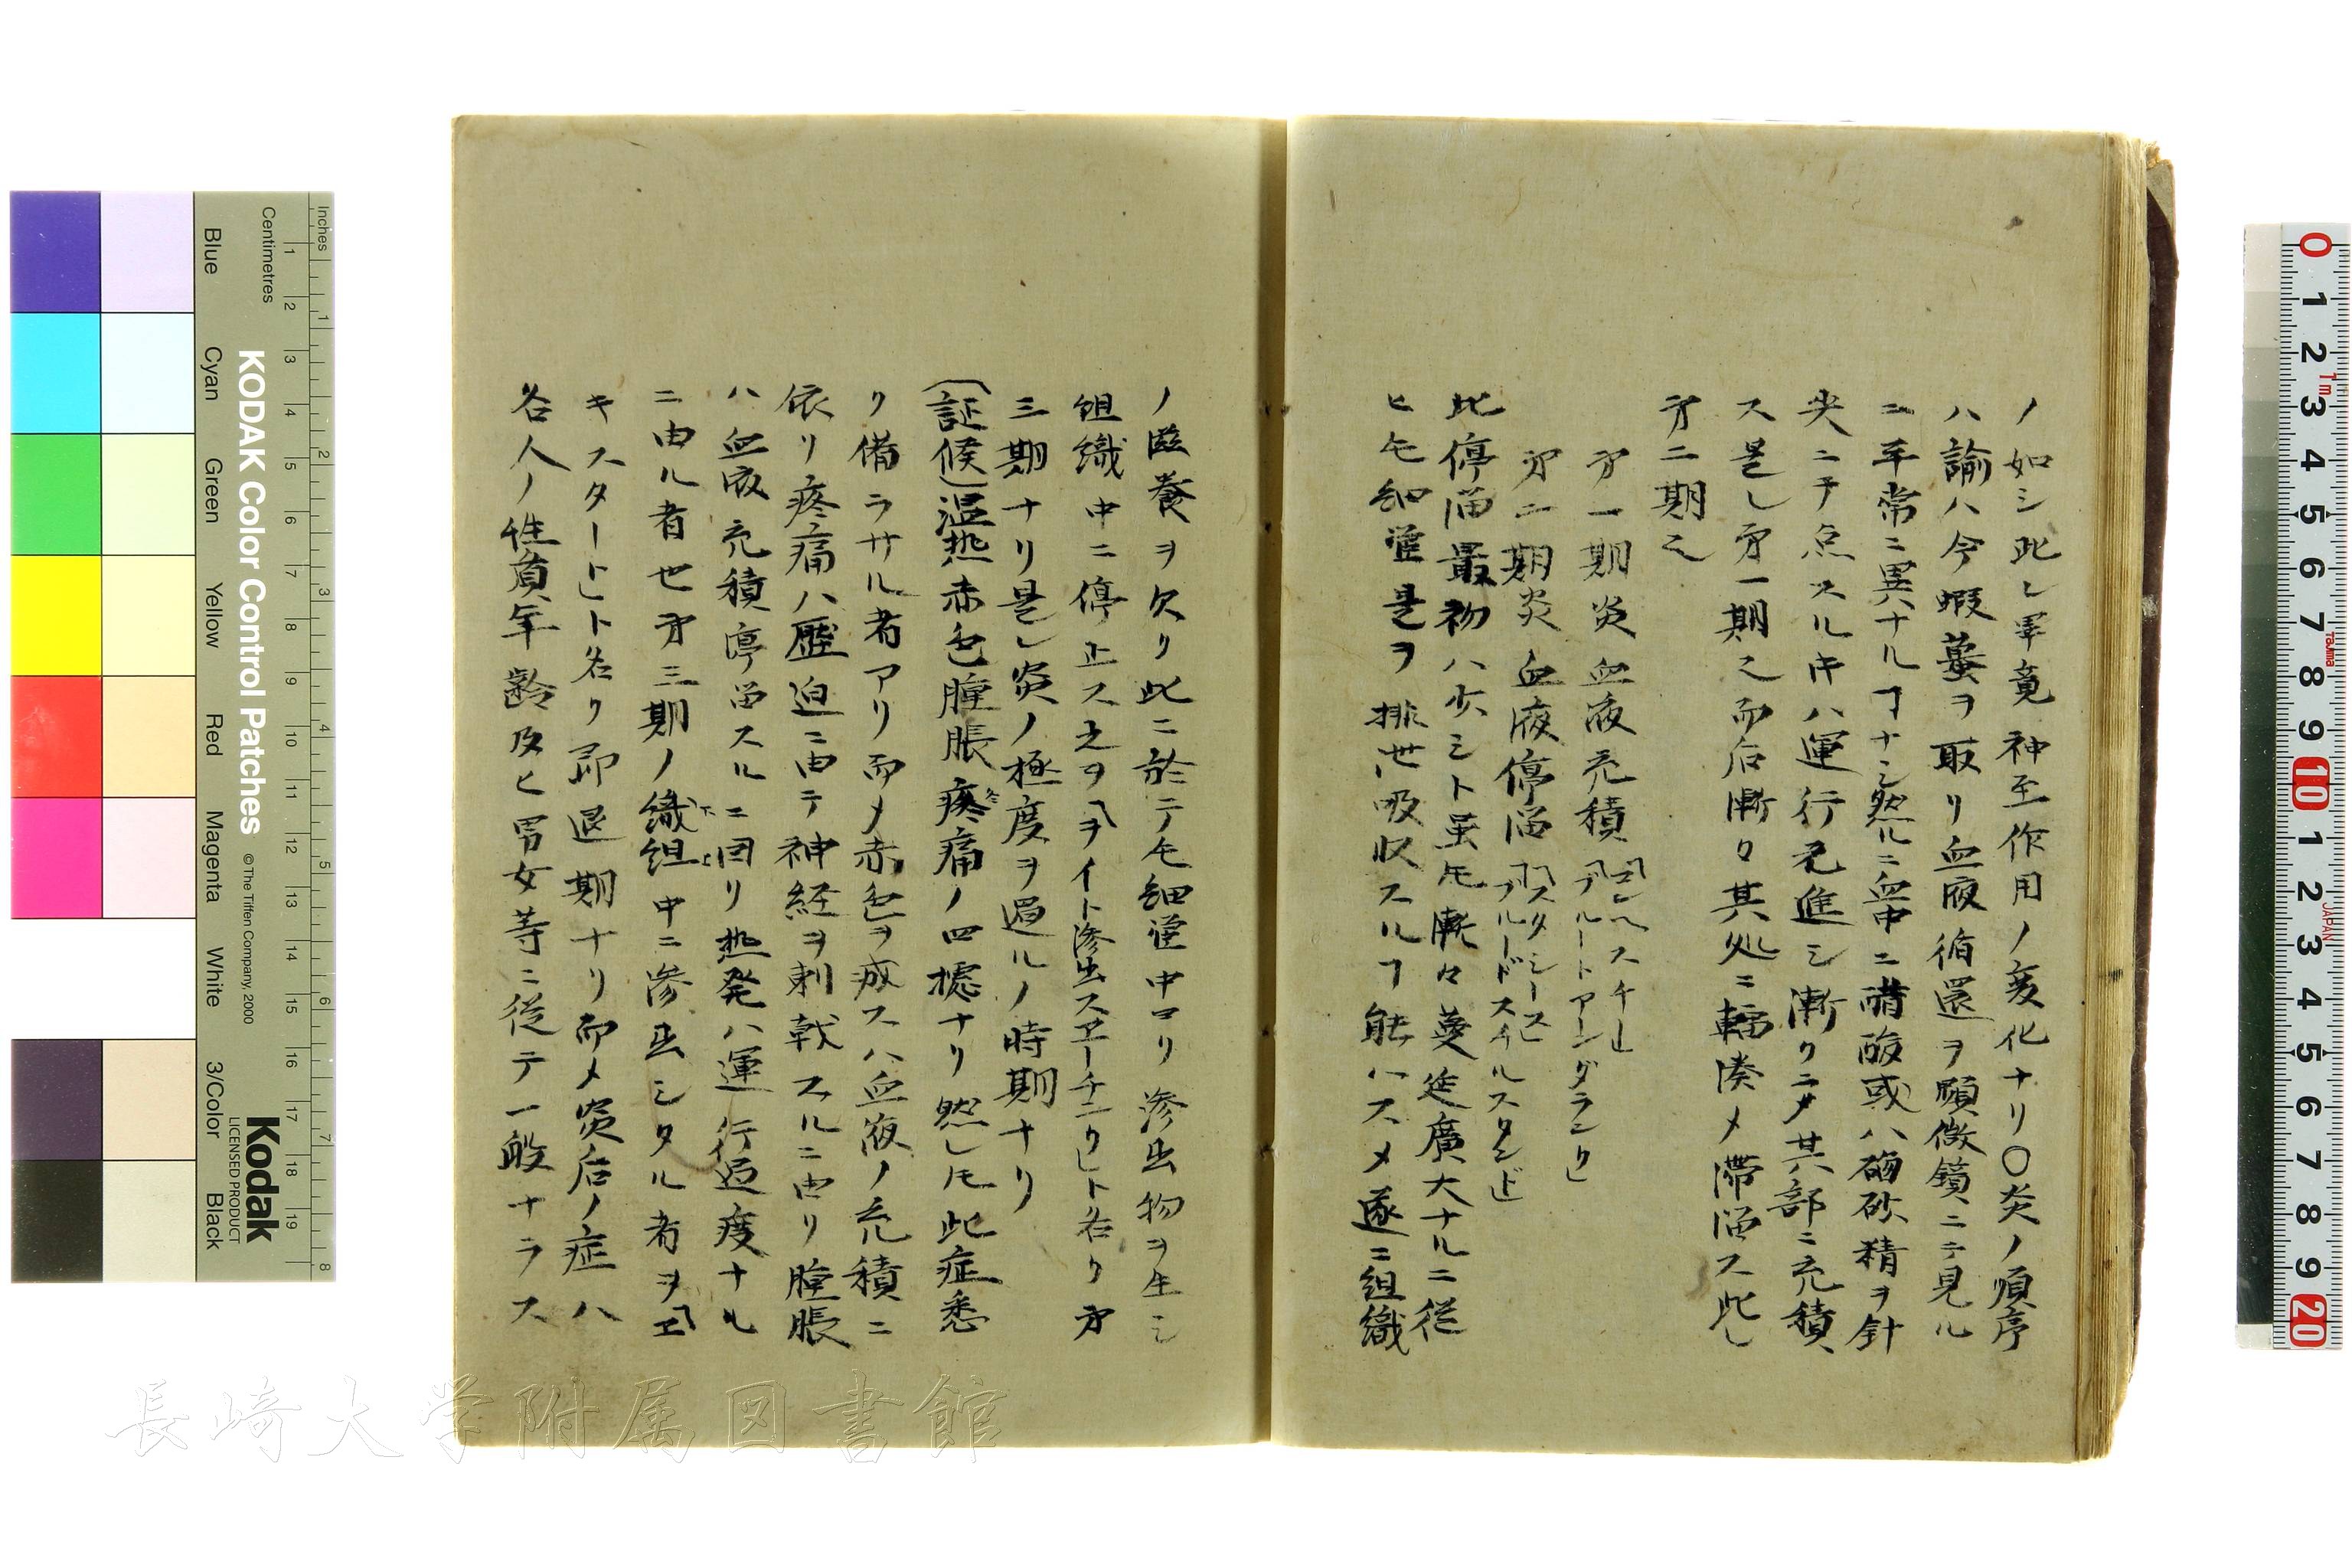 ノ如シ此レ畢竟神至作用ノ変化ナリ〇炎ノ順序
ハ諭ハ今蝦蟇ヲ取リ血液循還ヲ顕微鏡ニテ見ル
ニ平常ニ異ナルヿナシ然ルニ血中ニ醋酸或ハ硇砂精ヲ針
尖ニテ点スルキハ運行亢進シ漸クニ〆其部ニ充積
ス是レ㐧一期之而后漸ク其処ニ輻湊〆滞溜ス此レ
㐧二期之
㐧一期炎血液充積「コンヘスチー」「ブルートアンダランク」
㐧二期炎血液停溜「スタシース」「ブルードスチルスタンド」
此停溜最初ハ少シト虽𪜈漸々蔓延廣大ナルニ従
ヒ毛細管是ヲ排泄吸収スルヿ能ハス〆遂ニ組織
ノ滋養ヲ欠リ此ニ於テ毛細管中ヨリ滲出物ヲ生シ
組織中ニ停止ス之ヲ「ヲイト滲出スヱーチンク」ト名ク㐧
三期ナリ是レ炎ノ極度ヲ過ルノ時期ナリ
(証候)温热赤色腫脹疼痛ノ四摅ナリ然レ𪜈此症悉
ク備ラサル者アリ而〆赤色ヲ成スハ血液ノ充積ニ
依リ疼痛ハ壓迫ニ由テ神経ヲ刺戟スルニ由リ腫脹
ハ血液充積停畄スルニ因リ热発ハ運行過度ナル
ニ由ル者也㐧三期ノ織組中ニ滲出シタル者ヲ「ヱ
キスタート」ト名ク即退期ナリ而〆炎后ノ症ハ
各人ノ性質年齢及ヒ男女等ニ従テ一般ナラス
長崎大学附属図書館
KODAK Color Control Patches
© The Tiffen Company, 2000
Kodak
LICENSED PRODUCT
Inches
Centimetres
Blue
Cyan
Green
Yellow
Red
Magenta
White
3/Color
Black
1 2 3 4 5 6 7 8 9 10 11 12 13 14 15 16 17 18 19
1 2 3 4 5 6 7 8
0 1 2 3 4 5 6 7 8 9 10 1 2 3 4 5 6 7 8 9 20
1m
Tajima
JAPAN